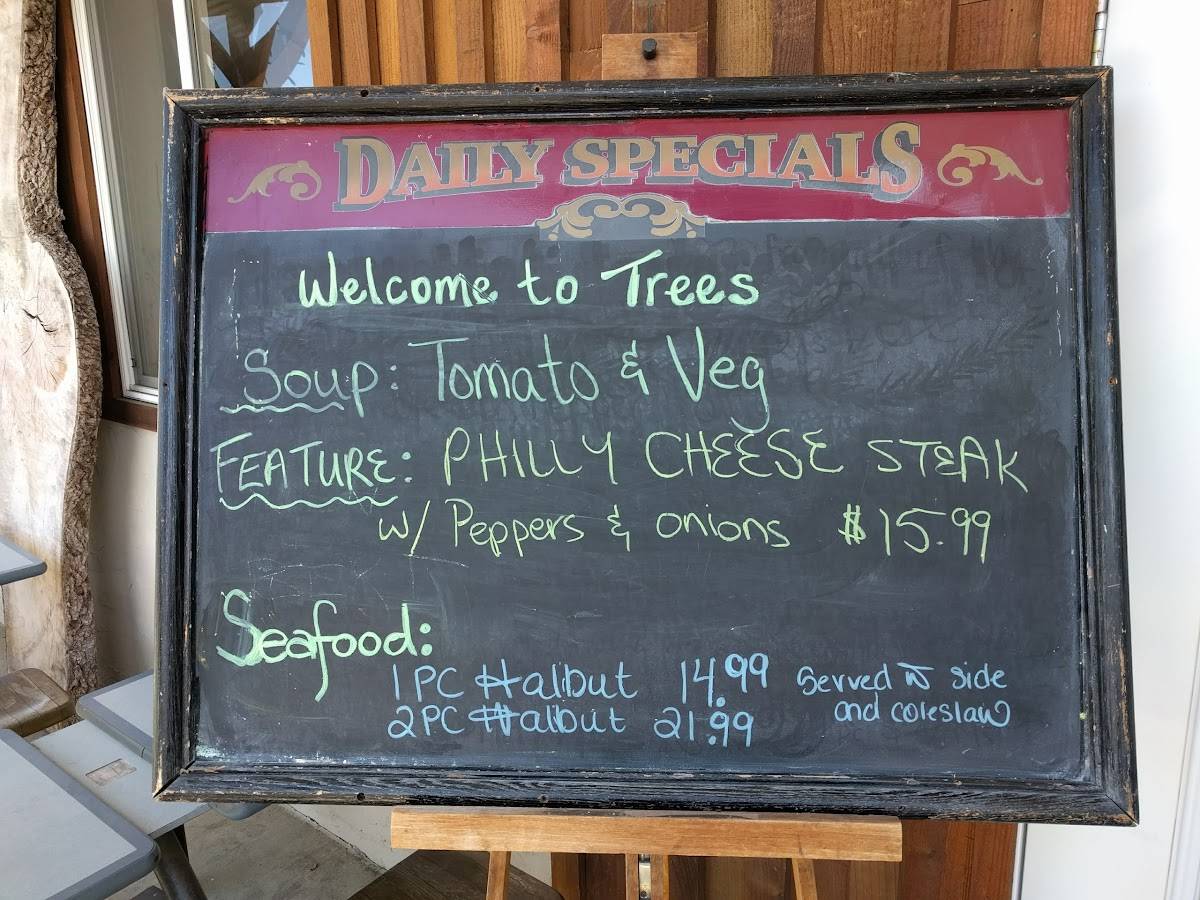 DAILY SPECIALS
Welcome to Trees
Soup: Tomato & Veg
FEATURE: PHILLY CHEESE STEAK
w/ Peppers & onions $15.99
Seafood:
1 PC Halibut 14.99 Served w side
2 PC Halibut 21.99 and coleslaw